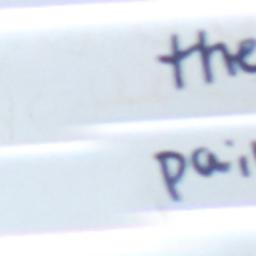 the
pai